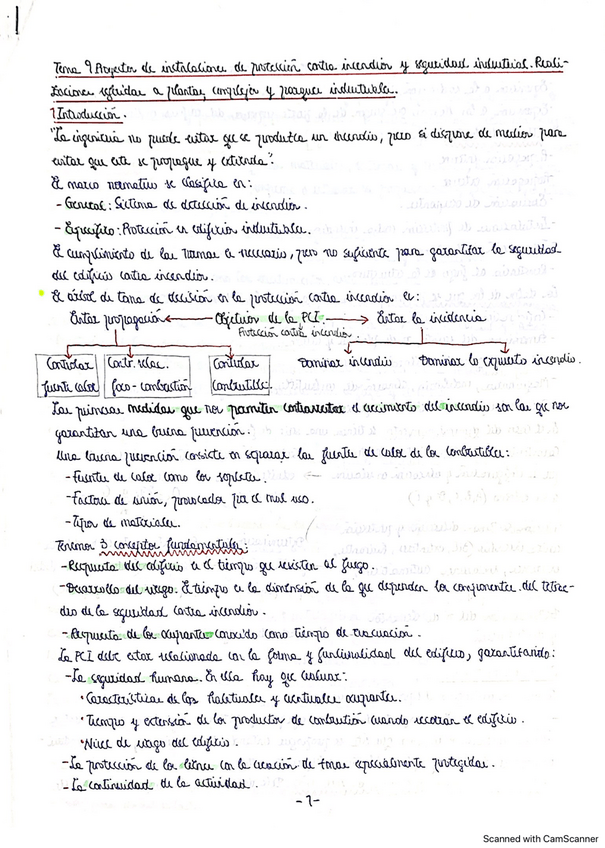 Tema 9 Proyectos de instalaciones de protección contra incendios y seguridad industrial. Reali-
zaciones referidas a plantas, complejos y parques industriales.
1 Introducción.
"La ingeniería no puede evitar que se produzca un incendio, pero si dispone de medios para
evitar que este se propague y extienda".
El marco normativo se clasifica en:
- General: Sistema de detección de incendios.
- Específico: Protección en edificios industriales.
El cumplimiento de las normas es necesario, pero no suficiente para garantizar la seguridad
del edificio contra incendios.
El árbol de toma de decisión en la protección contra incendios es:
Evitar propagación ← Objetivos de la PCI → Evitar la incidencia
Protección contra incendios.
Controlar fuente calor
Contr. relac. foco-combustión
Controlar combustible.
Dominar incendio
Dominar lo expuesto incendio.
Las primeras medidas que nos permiten contrarrestar el crecimiento del incendio son las que nos
garantizan una buena prevención.
Una buena prevención consiste en separar las fuentes de calor de los combustibles:
- Fuentes de calor como los sopletes.
- Factores de unión, provocados por el mal uso.
- Tipos de materiales.
Tenemos 3 conceptos fundamentales:
- Respuesta del edificio es el tiempo que resisten al fuego.
- Desarrollo del riesgo. El tiempo es la dimensión de la que dependen los componentes del tetrae-
dro de la seguridad contra incendios.
- Respuesta de los ocupantes conocido como tiempo de evacuación.
La PCI debe estar relacionada con la forma y funcionalidad del edificio, garantizando:
- La seguridad humana. En ella hay que evaluar:
· Características de los habituales y eventuales ocupantes.
· Tiempo y extensión de los productos de combustión cuando recorran el edificio.
· Nivel de riesgo del edificio.
- La protección de los bienes con la creación de zonas especialmente protegidas.
- La continuidad de la actividad.
-1-
Scanned with CamScanner